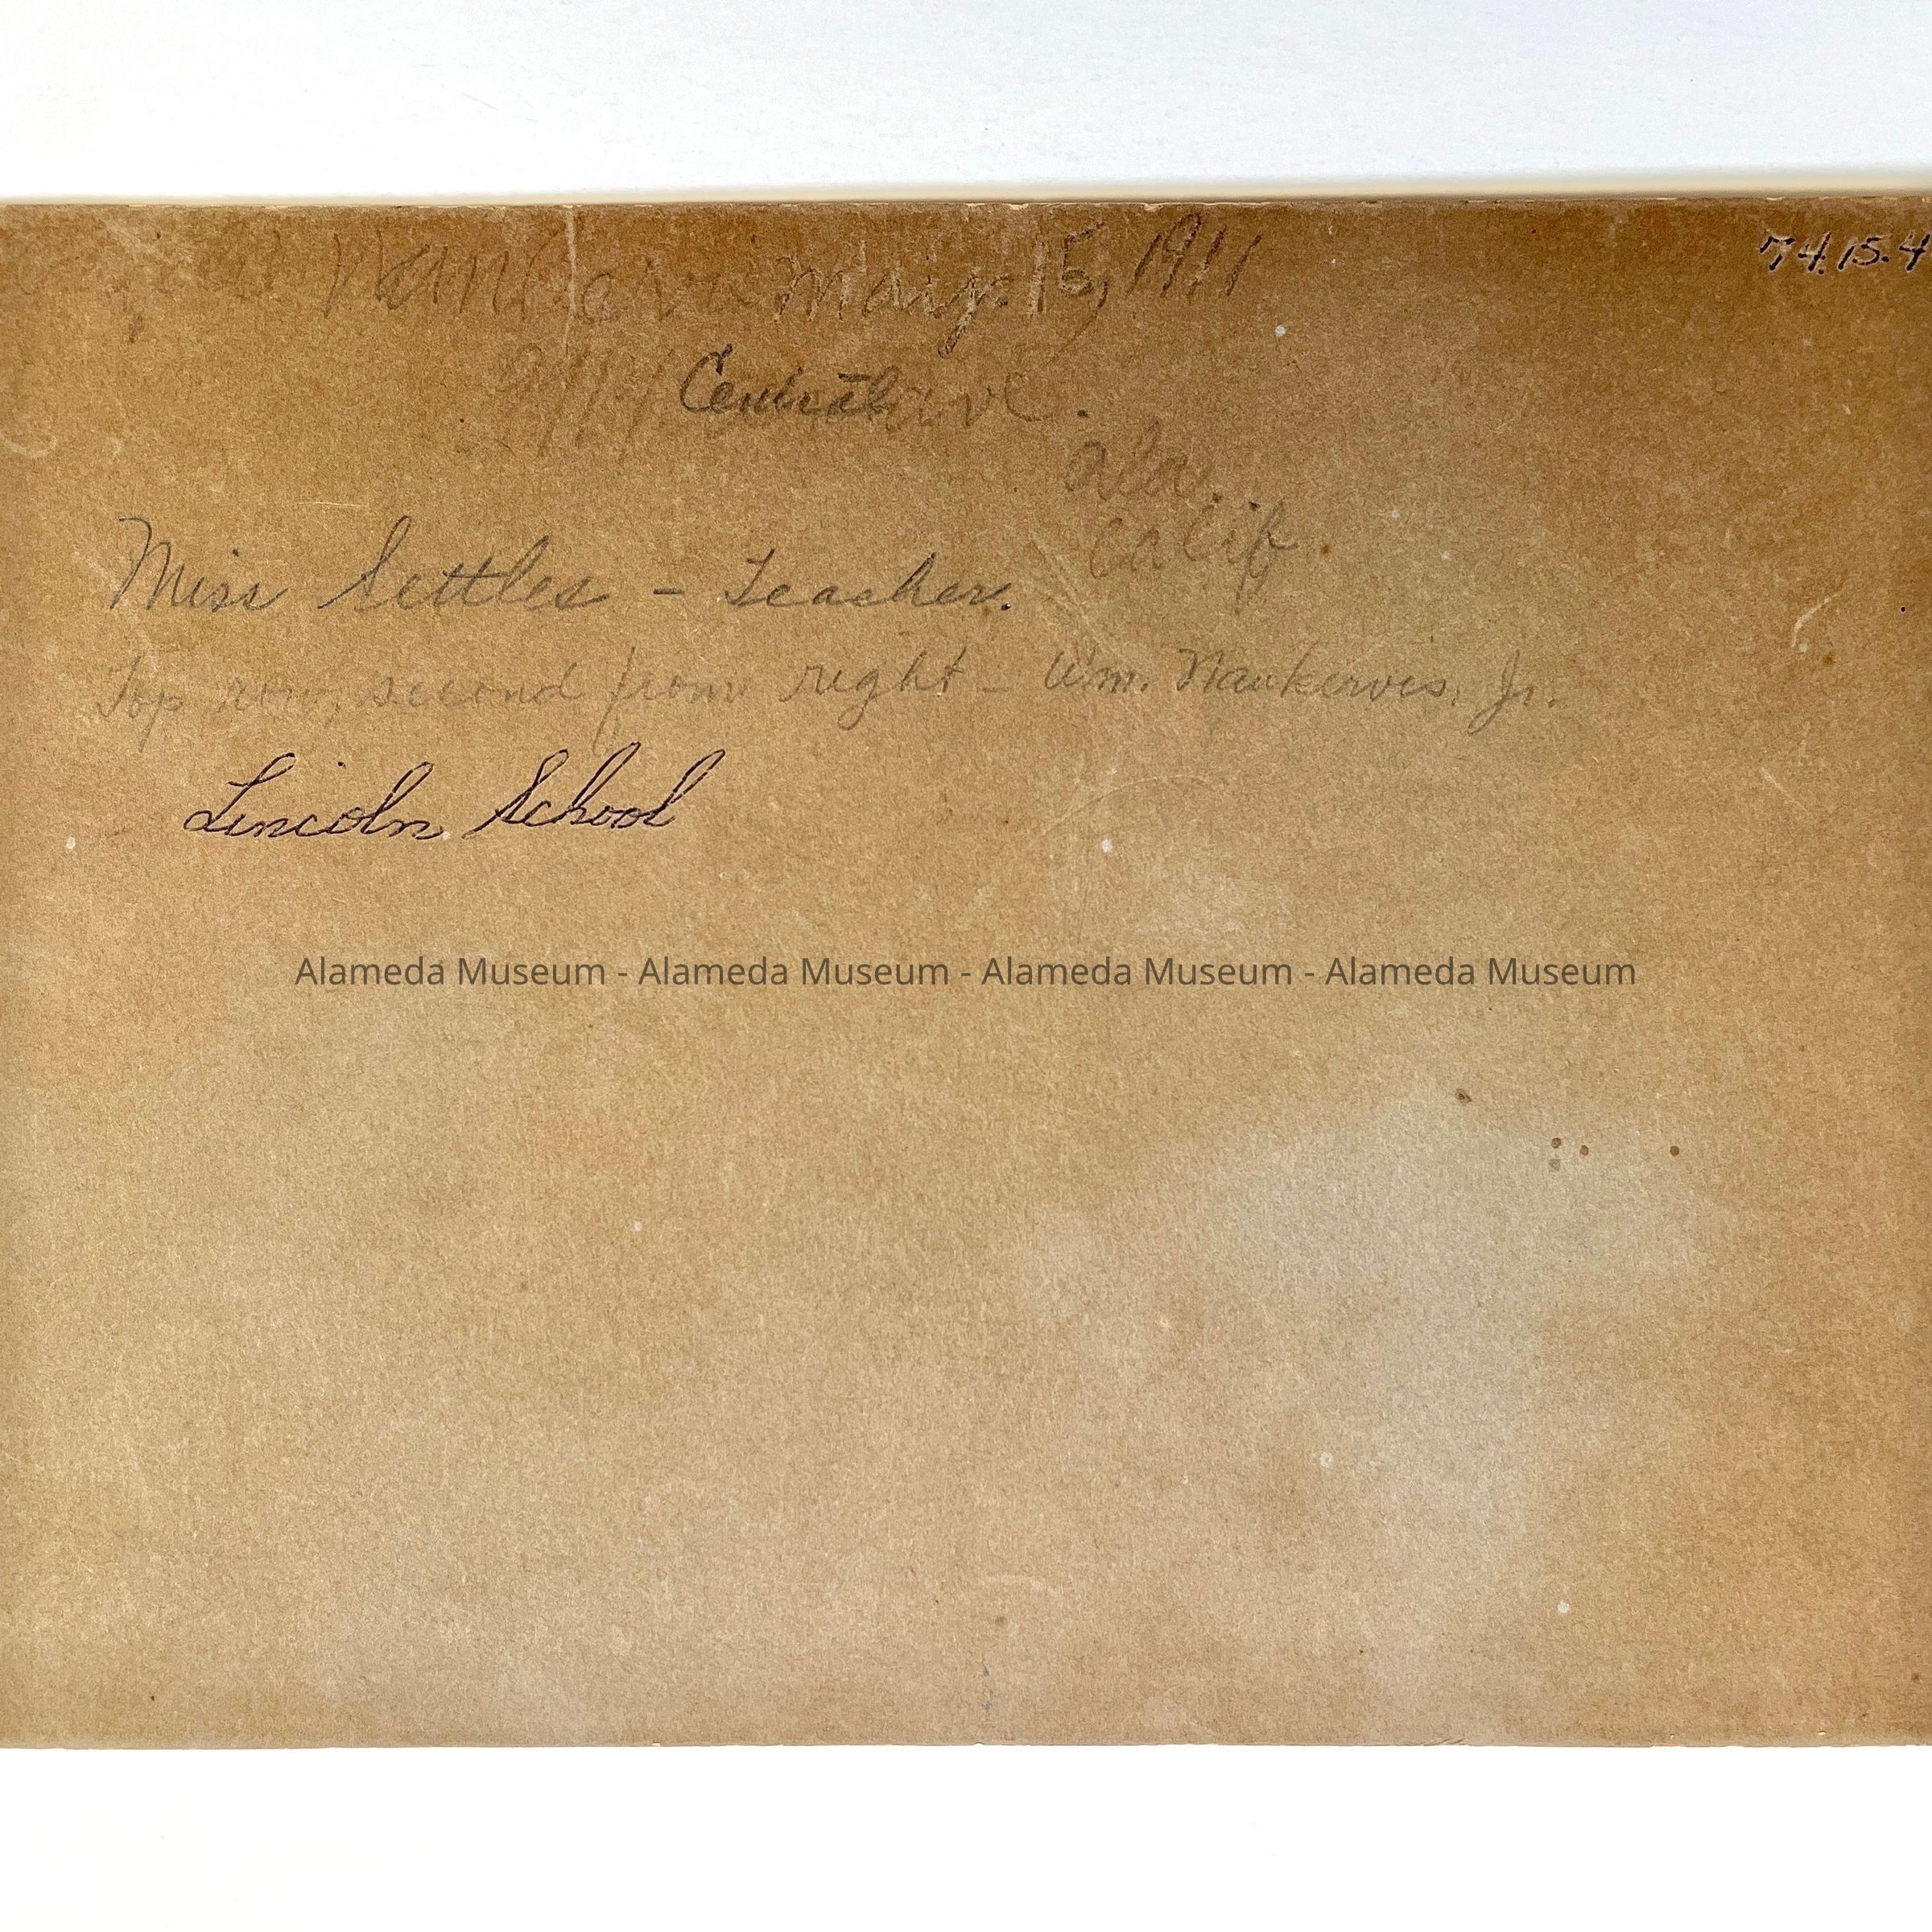 May 15, 1911
74.15.4
Central ave.
ala.
Calif.
Miss Settles - Teacher.
Top row, second from right - Wm. Nankervis, Jr.
Lincoln School
Alameda Museum - Alameda Museum - Alameda Museum - Alameda Museum